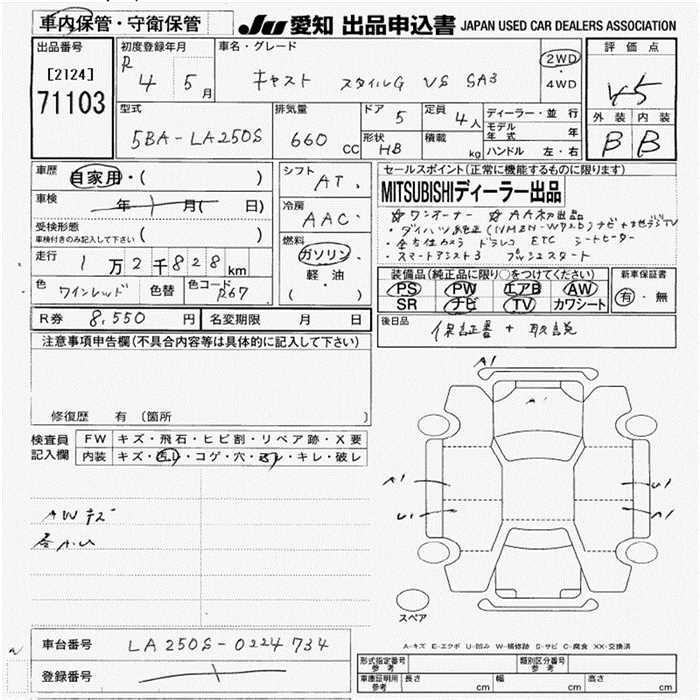 車内保管・守衛保管
JU 愛知 出品申込書 JAPAN USED CAR DEALERS ASSOCIATION
出品番号
[2124]
71103
初度登録年月
R 4 5月
車名・グレード
キャスト スタイルG VS SA3
2WD
・
4WD
評価点
4.5
外装 内装
B B
型式
5BA-LA250S
排気量
660 CC
ドア 5
形状 HB
定員 4人
積載 kg
ディーラー・並行
モデル年式 年
ハンドル 左・右
車歴
自家用・( )
車検
年 月( 日)
受検形態
車検付きのみ記入して下さい ( )
走行
1万2千828km
色 ワインレッド 色替 色コード R67
シフト
AT
冷房
AAC
燃料
ガソリン
・
軽・油
( )
セールスポイント(正常に機能するものに限ります)
MITSUBISHIディーラー出品
☆ワンオーナー ☆AA初出品
・全方位カメラ ドラレコ ETC シートヒーター
・スマートアシスト3 プッシュスタート
装備品(純正品に限り○をつけてください)
PS PW エアB AW
SR ナビ TV カワシート
新車保証書
有・無
R券 8,550 円
名変期限 月 日
後日品
保証書 + 取説
注意事項申告欄(不具合内容等は具体的に記入して下さい)
修復歴 有 (箇所 )
検査員記入欄
FW キズ・飛石・ヒビ割・リペア跡・X要
内装 キズ・汚レ・コゲ・穴・スレ・キレ・破レ
AWキズ
各AU
A1
A1
A1
U1
U1
A1
スペア
A-キズ E-エクボ U-凹み W-補修跡 S-サビ C-腐食 XX-交換済
車台番号
LA250S-0224734
登録番号
形式指定番号 参考
類別区分番号 参考
車庫証明用 参考 長さ cm 幅 cm 高さ cm